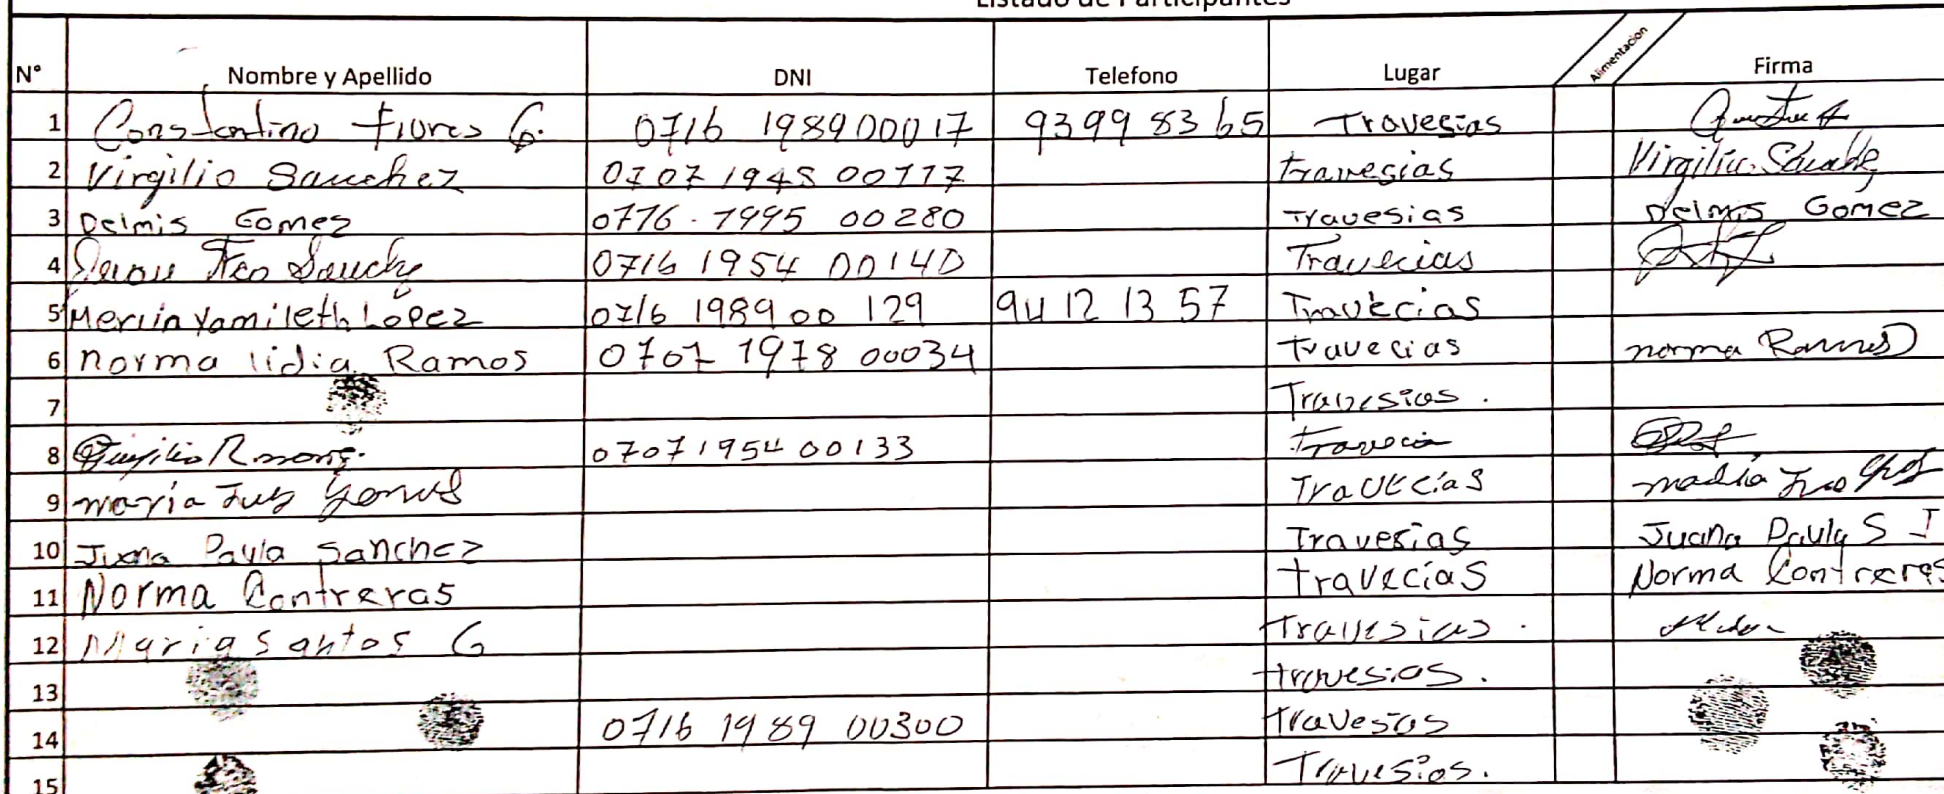 Listado de Participantes
N° Nombre y Apellido DNI Telefono Lugar Alimentacion Firma
1 Constantino Flores G. 0716 1989 00017 9399 83 65 Travesias
2 Virgilio Sanchez 0707 1945 00117 travesias Virgilio
3 Delmis Gomez 0716-1995 00280 Travesias Delmis Gomez
4 Fco Sanchez 0716 1954 00140 Travecias
5 Merlin Yamileth López 0716 1989 00 129 94 12 13 57 Travecias
6 norma lidia Ramos 0707 1978 00034 travecias norma Ramos
7 Travesias.
8 0707 1954 00133 travecia
9 maria Travecias maria
10 Juana Paula Sanchez Travesias Juana Paula S J
11 Norma Contreras travecias Norma Contreras
12 Maria Santos G Travesias.
13 travesias.
14 0716 1989 00300 travesas
15 Travesias.